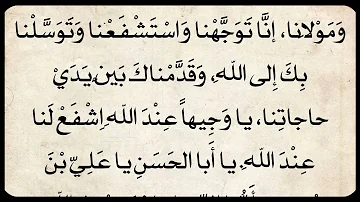 وَمَوْلانا، إنَّا تَوَجَّهْنا وَاسْتَشْفَعْنا وَتَوَسَّلْنا
بِكَ إلى اللهِ، وَقَدَّمْناكَ بَيْنَ يَدَيْ
حاجاتِنا، يا وَجِيهاً عِنْدَ اللهِ إشْفَعْ لَنا
عِنْدَ اللهِ. يا أَبا الحَسَنِ يا عَلِيّ بْنَ